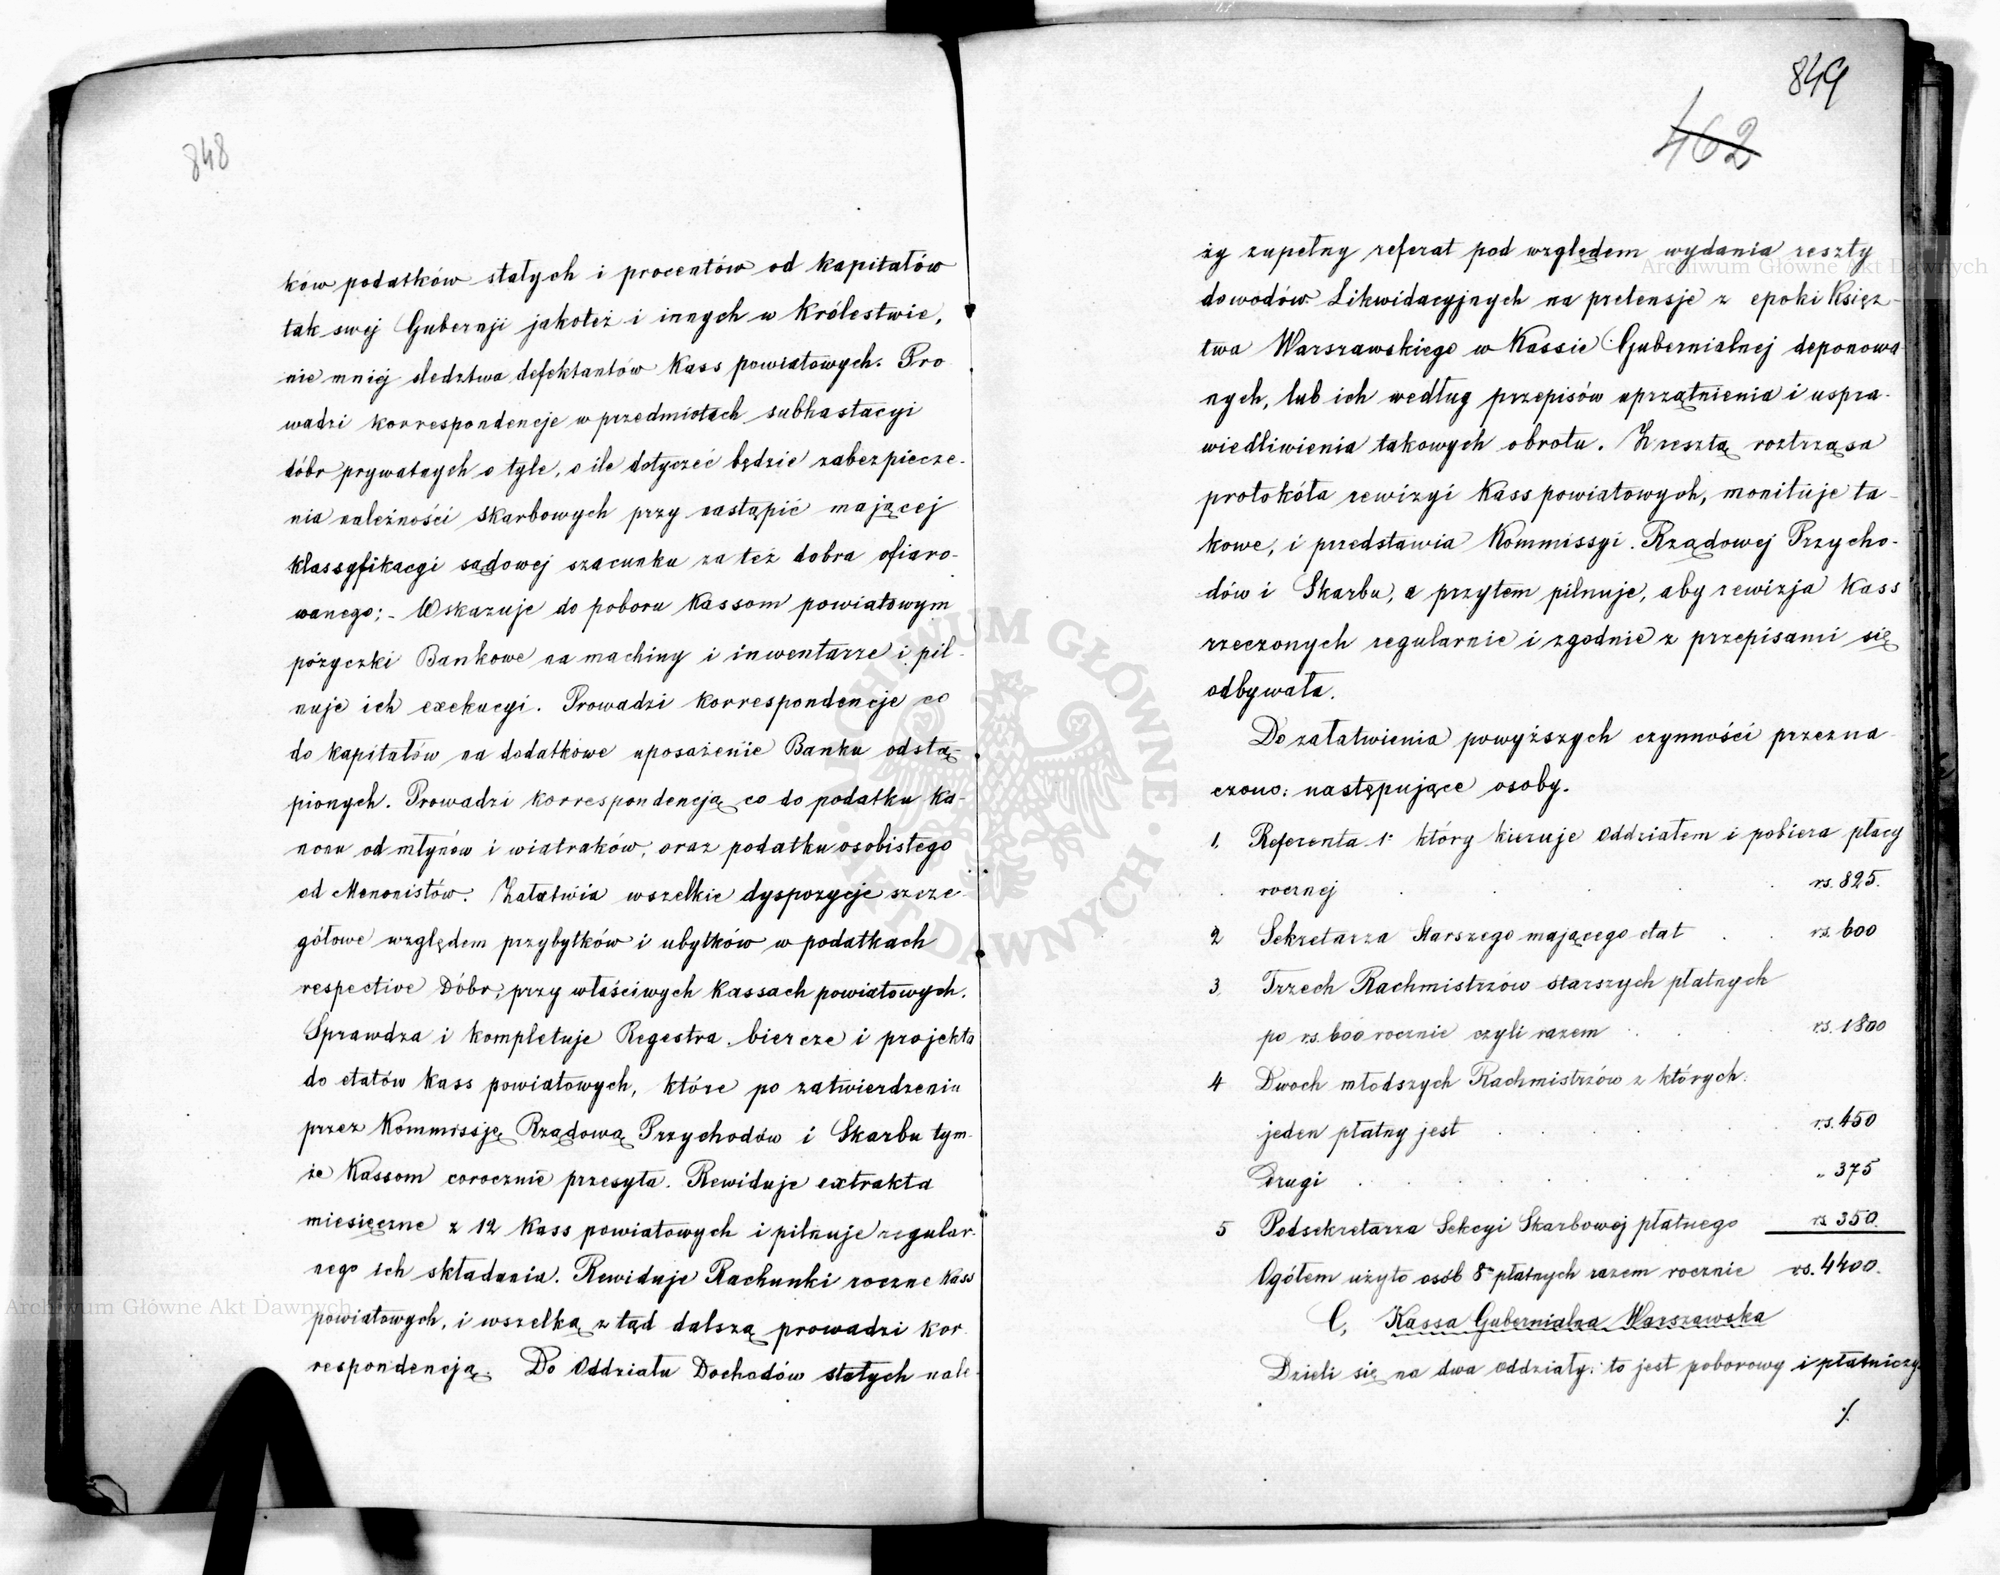 848
ków podatków stałych i procentów od kapitałów
tak swej Gubernji jakoteż i innych w Królestwie,
nie mniej śledztwa defektantów Kass powiatowych. Pro
wadzi korrespondencje w przedmiotach subhastacyi
dóbr prywatnych o tyle, o ile dotyczeć będzie zabezpiecze-
nia należności skarbowych przy nastąpić mającej
klassyfikacyi sądowej szacunku za też dobra ofiaro-
wanego; - Wskazuje do poboru Kassom powiatowym
pożyczki Bankowe na machiny i inwentarze i pil-
nuje ich exekucyi. Prowadzi korrespondencje co
do kapitałów na dodatkowe uposażenie Banku odstą-
pionych. Prowadzi korrespondencją co do podatku Ka-
nonu od młynów i wiatraków, oraz podatku osobistego
od Menonistów. Załatwia wszelkie dyspozycje szcze-
gółowe względem przybytków i ubytków w podatkach
respective Dóbr, przy właściwych Kassach powiatowych.
Sprawdza i kompletuje Regestra biercze i projekta
do etatów Kass powiatowych, które po zatwierdzeniu
przez Kommissję Rządową Przychodów i Skarbu tym-
że Kassom corocznie przesyła. Rewiduje extrakta
miesięczne z 12 Kass powiatowych i pilnuje regular-
nego ich składania. Rewiduje Rachunki roczne Kass
powiatowych, i wszelką z tąd dalszą prowadzi kor
respondencją. Do Oddziału Dochodów stałych nale-
849
462
ży zupełny referat pod względem wydania reszty
dowodów Likwidacyjnych na pretensje z epoki Księz-
twa Warszawskiego w Kassie Gubernialnej deponowa
nych, lub ich według przepisów uprzątnienia i uspra-
wiedliwienia takowych obrotu. Zresztą roztrząsa
protokóła rewizyi Kass powiatowych, monituje ta-
kowe, i przedstawia Kommissyi Rządowej Przycho-
dów i Skarbu, a przytem pilnuje, aby rewizja Kass
rzeczonych regularnie i zgodnie z przepisami się
odbywała.
Do załatwienia powyższych czynności przezna-
czono: następujące osoby.
1. Referenta 1º który kieruje Oddziałem i pobiera płacy
rocznej . . . . rs. 825.
2 Sekretarza Starszego mającego etat . . rs. 600
3. Trzech Rachmistrzów starszych płatnych
po rs. 600 rocznie czyli razem . . . rs. 1800
4 Dwoch młodszych Rachmistrzów z których:
jeden płatny jest . . . . rs. 450
Drugi . . . . . „ 375
5 Podsekretarza Sekcyi Skarbowej płatnego rs. 350.
Ogółem użyto osób 8 płatnych razem rocznie rs. 4400.
C, Kassa Gubernialna Warszawska
Dzieli się na dwa oddziały: to jest poborowy i płatniczy
./.
Archiwum Główne Akt Dawnych
Archiwum Główne Akt Dawnych
ARCHIWUM GŁÓWNE · AKT DAWNYCH ·